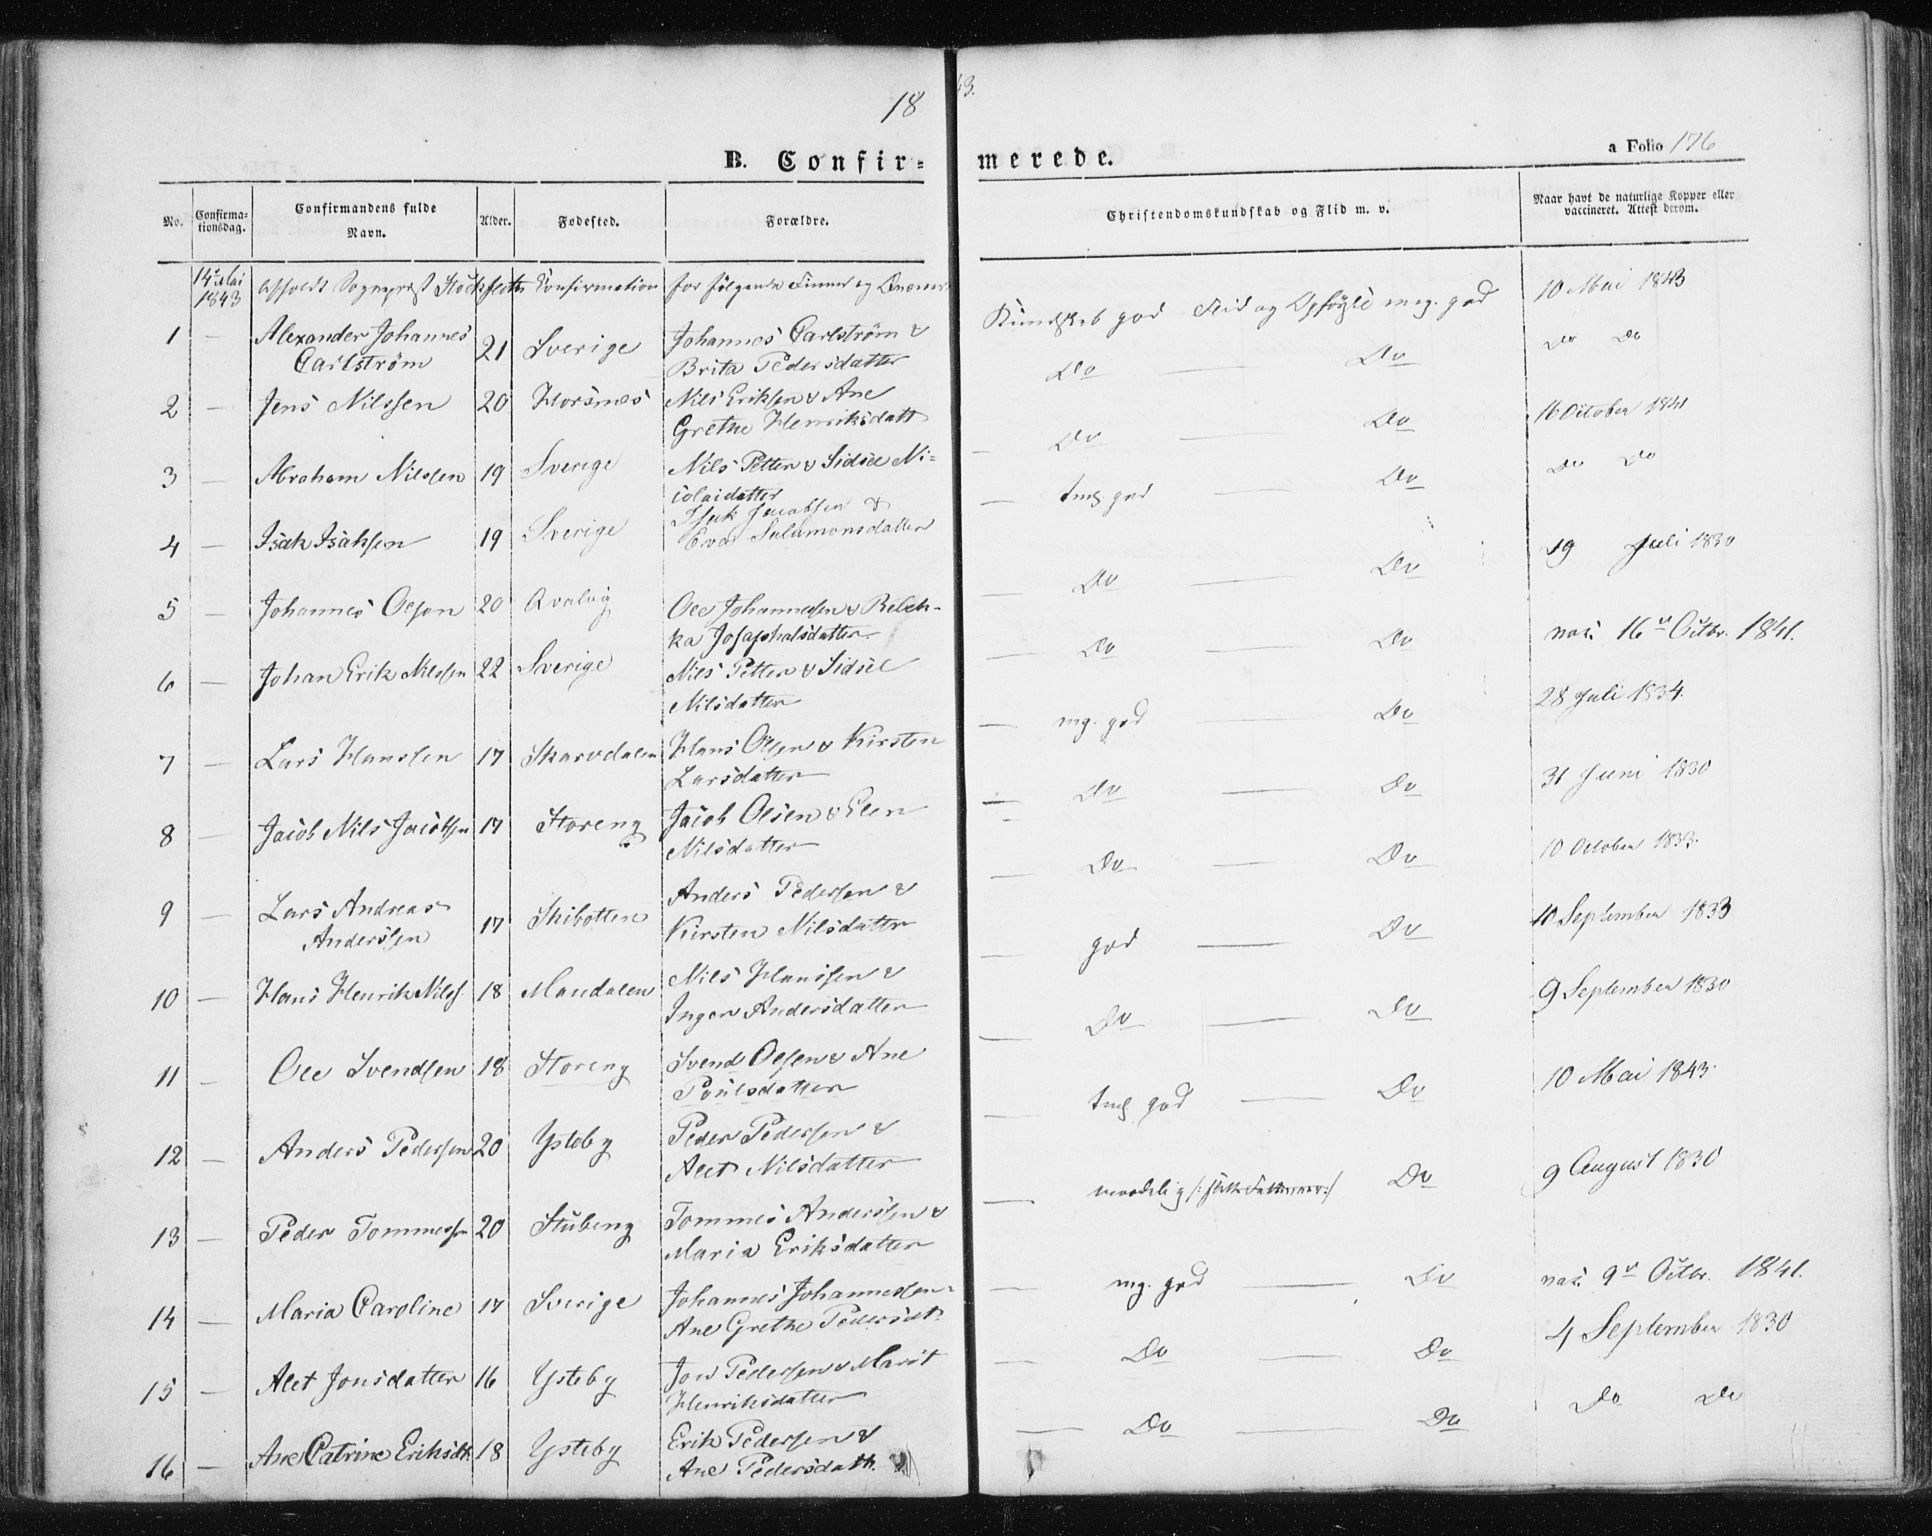 1843.
B. Confirmerede.
a Folio 176
No. Confirmationsdag. Confirmandens fulde Navn. Alder. Fødested. Forældre. Christendomskundskab og Flid m. v. Naar havt de naturlige Kopper eller vaccineret. Attest derom.
14de Mai 1843 afholdt Sogneprest Stockfleth Confirmation for følgende Finner og Qvæner.
1 — Alexander Johannes Carlström 21 Sverige Johannes Carlström & Brita Pedersdatter Kundskab god Flid og Opførsel meg. god 10 Mai 1843
2 — Jens Nilssen 20 Horsnes Nils Eriksen & Ane Grethe Henriksdatt Do — Do Do Do
3 — Abraham Nilssen 19 Sverige Nils Petter & Sidsel Nicolaidatter — Do — Do 16 October 1841
4 — Isak Isaksen 19 Sverige Isak Jacobsen & Eva Salamonsdatter — tmg god — Do Do Do
5 — Johannes Olsen 20 Qvalvig Ole Johannesen & Rebekka Josaphatsdatter — Do — Do 19 Juli 1830
6 — Johan Erik Nilssen 22 Sverige Nils Petter & Sidsel Nilsdatter — Do — Do vac. 16de Octbr. 1841.
7 — Lars Hanssen 17 Skarvdalen Hans Olsen & Kirsten Larsdatter — mg. god — Do 28 Juli 1834.
8 — Jacob Nils Jacobsen 17 Storeng Jacob Olsen & Elen Nilsdatter — Do — Do 31 Juni 1830
9 — Lars Andreas Anderssen 17 Skibotten Anders Pedersen & Kirsten Nilsdatter — Do — Do 10 October 1833.
10 — Hans Henrik Nilss. 18 Mandalen Nils Hanssen & Inger Andersdatter — god — Do 10 September 1833
11 — Ole Svendsen 18 Storeng Svend Olsen & Ane Poulsdatter — Do — Do 9 September 1830
12 — Anders Pedersen 20 Ysteby Peder Pedersen & Alet Nilsdatter — tmg god — Do 10 Mai 1843.
13 — Peder Tommessen 20 Stubeng Tommes Anderssen & Maria Eriksdatter — maadelig Do 9 August 1830
14 — Maria Caroline 17 Sverige Johannes Johannessen Ane Grethe Pedersdt. — mg. god — Do vac. 9de Octbr. 1841.
15 — Alet Jonsdatter 16 Ysteby Jon Pedersen & Marit Henriksdatter — Do — Do 4 September 1830
16 — Ane Catrine Eriksdtr. 18 Ysteby Erik Pedersen & Ane Pedersdattr. — Do — Do Do Do